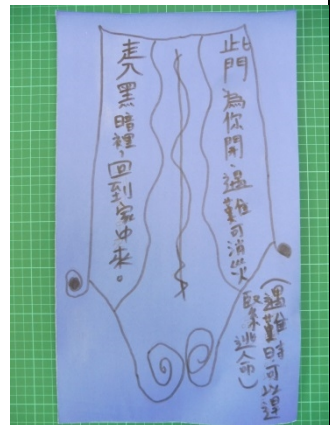 此門為你開,遇難可消災
走入黑暗裡,回到家中來。
(遇難時可以逞
緊逃人命)